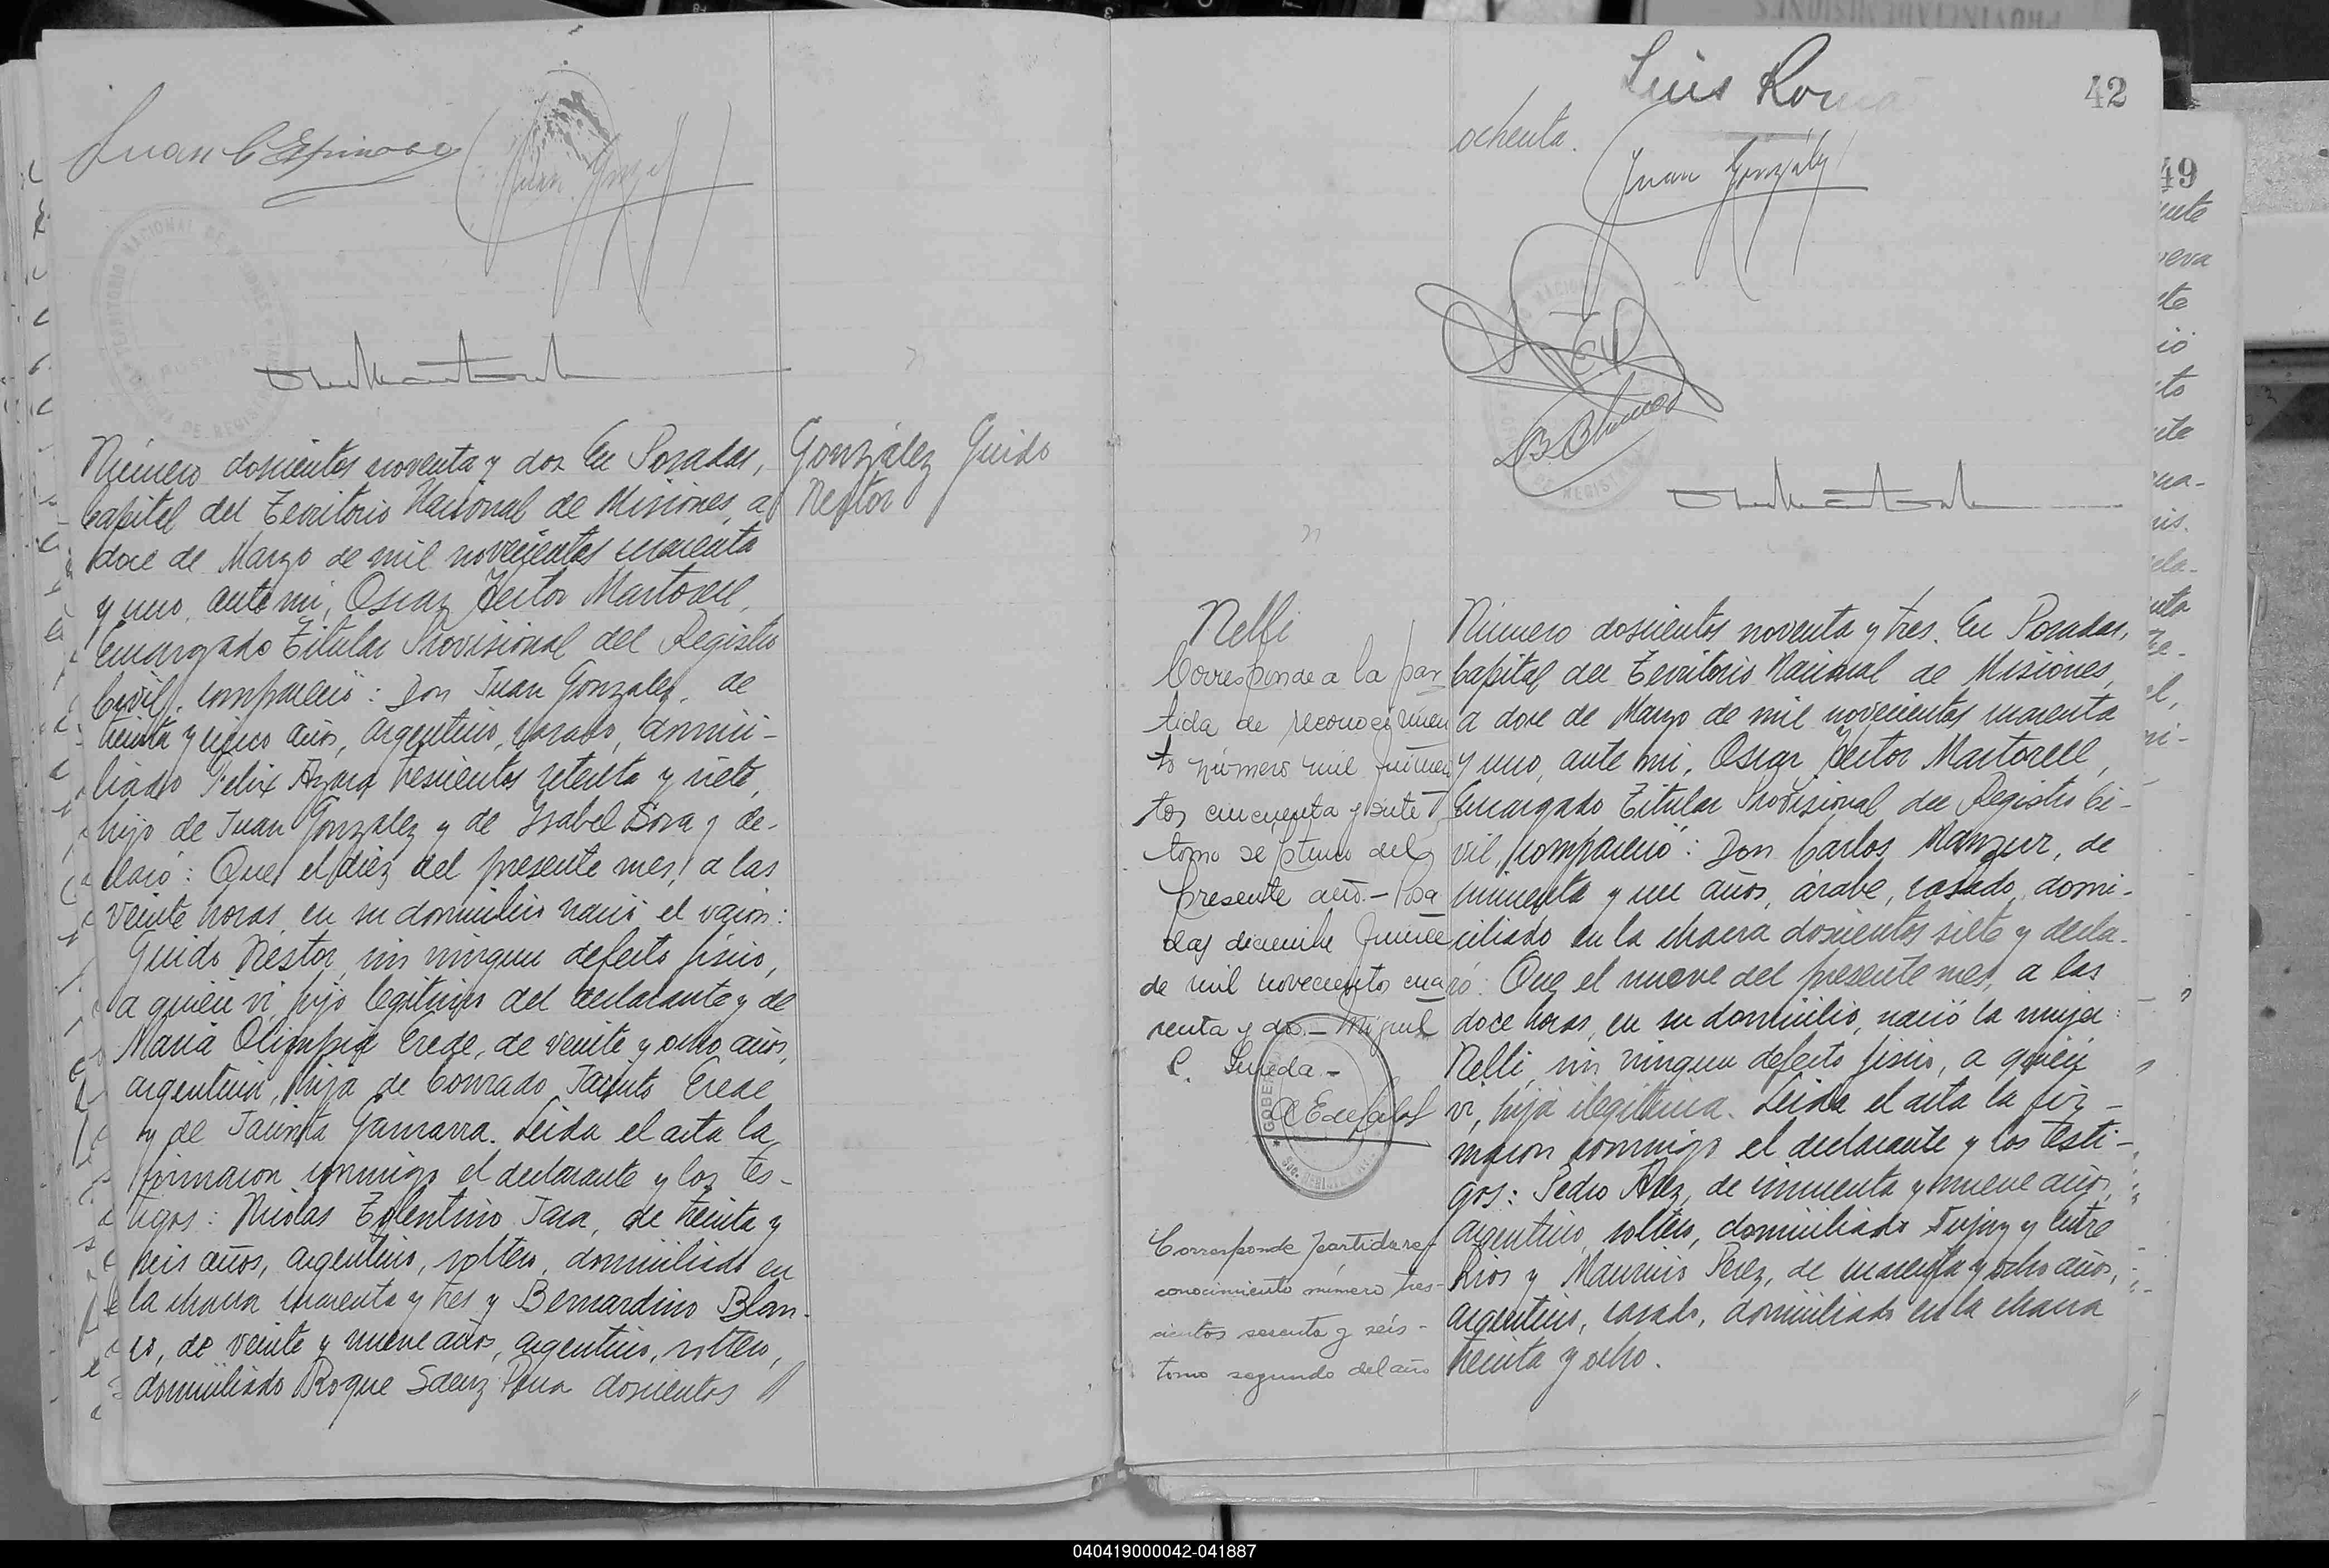 Juan C Espinosa
Juan González
Número doscientos noventa y dos En Posadas,
Capital del Territorio Nacional de Misiones, a
doce de Marzo de mil novecientos cuarenta
y uno, ante mi, Oscar Hector Martorell,
Encargado Titular Provisional del Registro
Civil, compareció: Don Juan Gonzalez, de
treinta y cinco años, argentino, casado, domici-
liado Felix Azara trescientos setenta y siete,
hijo de Juan Gonzalez y de Isabel Sosa y de-
claró: Que el diez del presente mes, a las
veinte horas, en su domicilio nació el varon:
Guido Nestor, sin ningun defecto fisico,
a quien vi, hijo legitimo del declarante y de
Maria Olimpia Erede, de veinte y ocho años,
argentina, hija de Conrado Jacinto Erede
y de Jacinta Gamarra. Leida el acta la
firmaron conmigo el declarante y los tes-
tigos: Nicolas Tolentino Jara, de treinta y
seis años, argentino, soltero, domiciliado en
la chacra cuarenta y tres y Bernardino Blan-
co, de veinte y nueve años, argentino, soltero,
domiciliado Roque Saenz Peña doscientos
González Guido
Nestor
Luis Roma
42
ochenta.
Juan González
Nelli
Corresponde a la par
tida de reconocimien
to número mil quinien
tos cincuenta y siete
tomo septimo del
presente año.- Posa
das diciembre quince
de mil novecientos cua
renta y dos.- Miguel
C.
Corresponde partida re-
conocimiento número tres-
cientos sesenta y seis-
tomo segundo del año
Número doscientos noventa y tres. En Posadas,
Capital del Territorio Nacional de Misiones,
a doce de Marzo de mil novecientos cuarenta
y uno, ante mi, Oscar Hector Martorell,
Encargado Titular Provisional del Registro Ci-
vil, compareció: Don Carlos Manzur, de
cincuenta y un años, árabe, casado, domi-
ciliado en la chacra doscientos siete y decla-
ró: Que el nueve del presente mes, a las
doce horas, en su domicilio, nació la mujer:
Nelli, sin ningun defecto fisico, a quien
vi, hija ilegitima. Leida el acta la fir-
maron conmigo el declarante y los testi-
gos: Pedro Aloz, de cincuenta y nueve años,
argentino, soltero, domiciliado Jujuy y Entre
Rios y Mauricio Perez, de cuarenta y ocho años,
argentino, casado, domiciliado en la chacra
treinta y ocho.
49
040419000042-041887